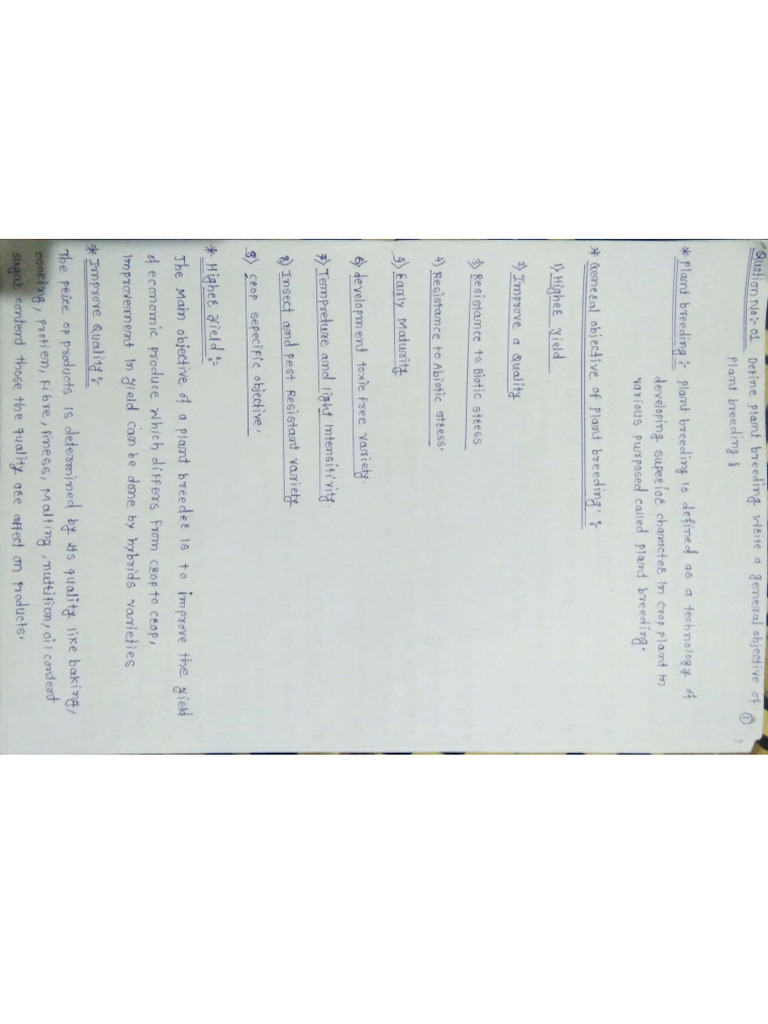 Quetion No:- 01 Define plant breeding write a general objective of ①
plant breeding?
* plant breeding:- plant breeding is defined as a technology of
developing superior character in crop plant in
various purposed called plant breeding.
* General objective of plant breeding:-
1) Higher yield
2) Improve a Quality
3) Resistance to Biotic stress
4) Resistance to Abiotic stress.
5) Early Maturity
6) development toxic free variety.
7) Tempreture and light Intensitivity.
8) Insect and pest Resistant variety
8) crop sepecific objective.
* Higher yield:-
The Main objective of a plant breeder is to improve the yield
of economic produce which differs from crop to crop,
Improvement in yield can be done by hybrids varieties
* Improve Quality:-
The price of products is determined by its quality like baking,
cooking, protien, Fibre, finess, Malting, nutition, oil content
sugar contend those the quality are affect on products.